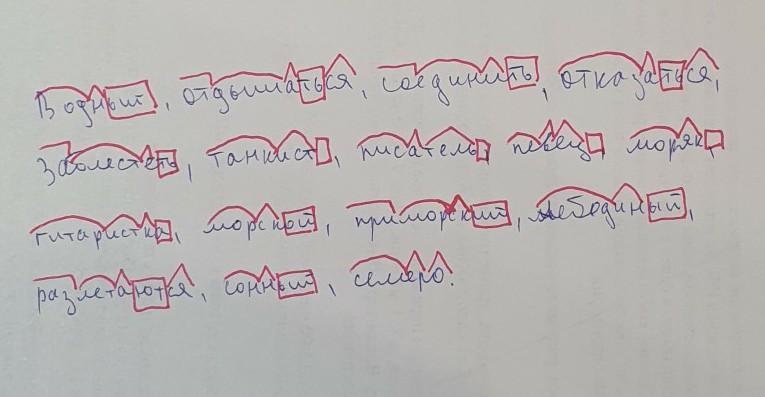 Водный, отдышаться, соединить, отказаться,
Заблестеть, танкист, писатель, певец, моряк,
гитаристка, морской, приморский, лебединый,
разлетаются, сонный, семеро.